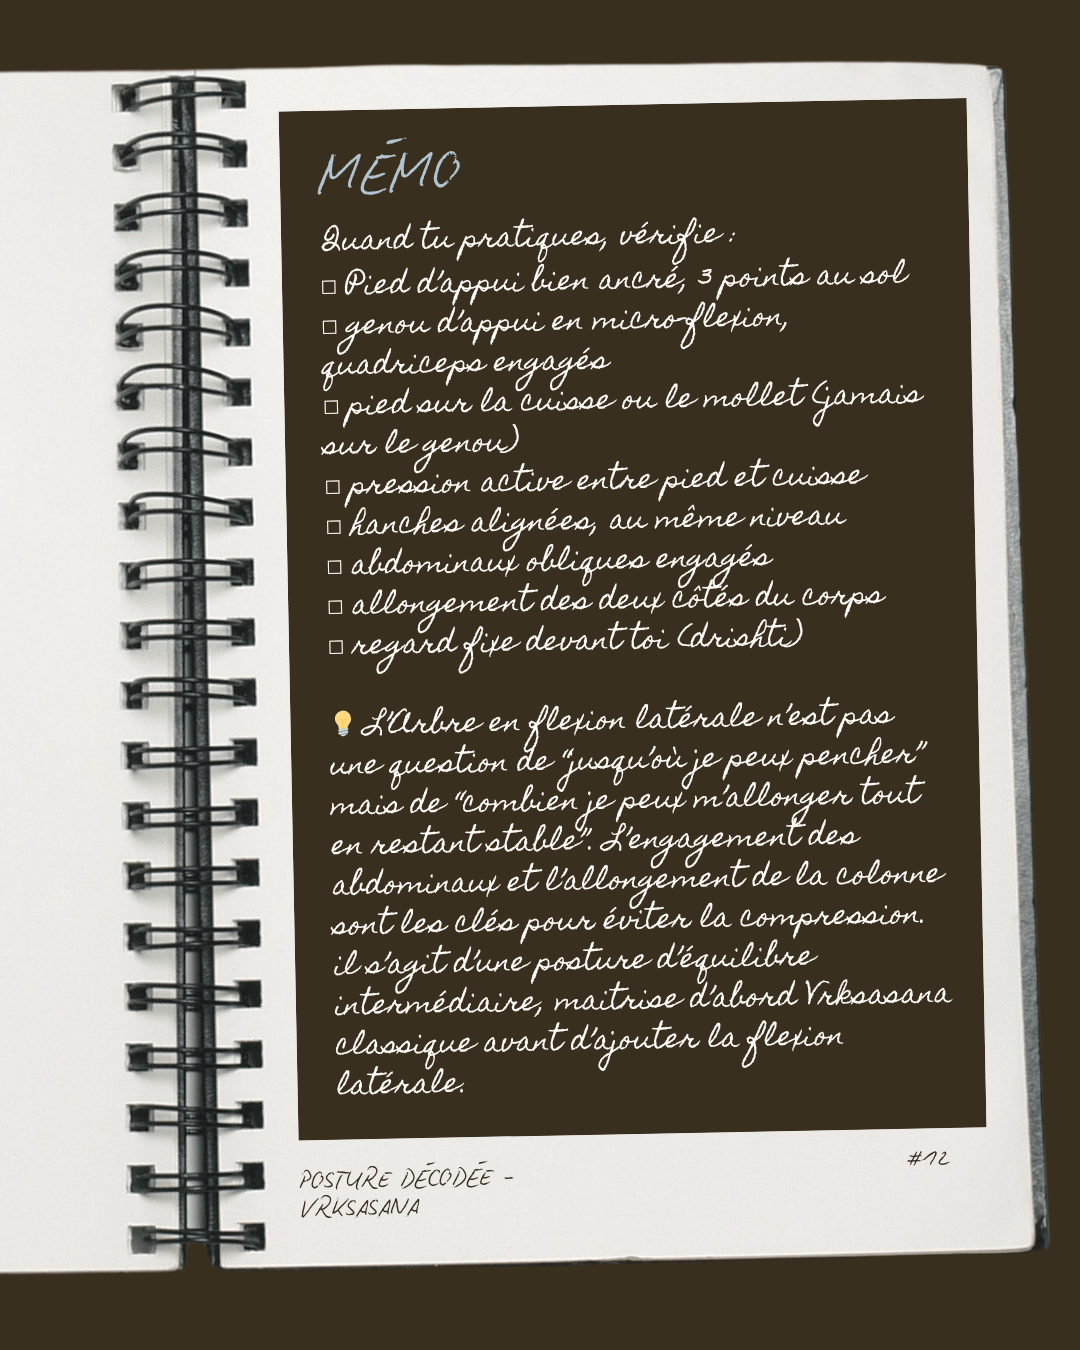 MÉMO
Quand tu pratiques, vérifie :
□ Pied d'appui bien ancré, 3 points au sol
□ genou d'appui en micro-flexion,
quadriceps engagés
□ pied sur la cuisse ou le mollet (jamais
sur le genou)
□ pression active entre pied et cuisse
□ hanches alignées, au même niveau
□ abdominaux obliques engagés
□ allongement des deux côtés du corps
□ regard fixe devant toi (drishti)
💡 L'Arbre en flexion latérale n'est pas
une question de "jusqu'où je peux pencher"
mais de "combien je peux m'allonger tout
en restant stable". L'engagement des
abdominaux et l'allongement de la colonne
sont les clés pour éviter la compression.
il s'agit d'une posture d'équilibre
intermédiaire, maitrise d'abord Vrksasana
classique avant d'ajouter la flexion
latérale.
#12
POSTURE DÉCODÉE -
VRKSASANA